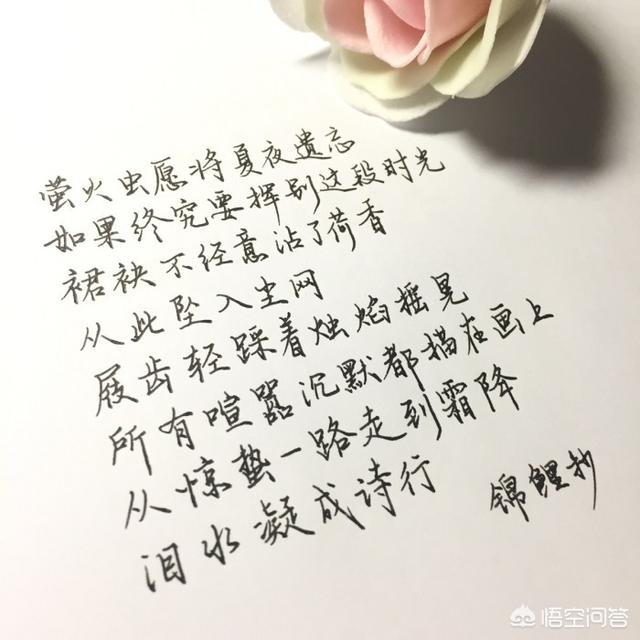 萤火虫愿将夏夜遗忘
如果终究要挥别这段时光
裙袂不经意沾了荷香
从此坠入尘网
屐齿轻踩着烛焰摇晃
所有喧嚣沉默都描在画上
从惊蛰一路走到霜降
泪水凝成诗行
锦鲤抄
悟空问答